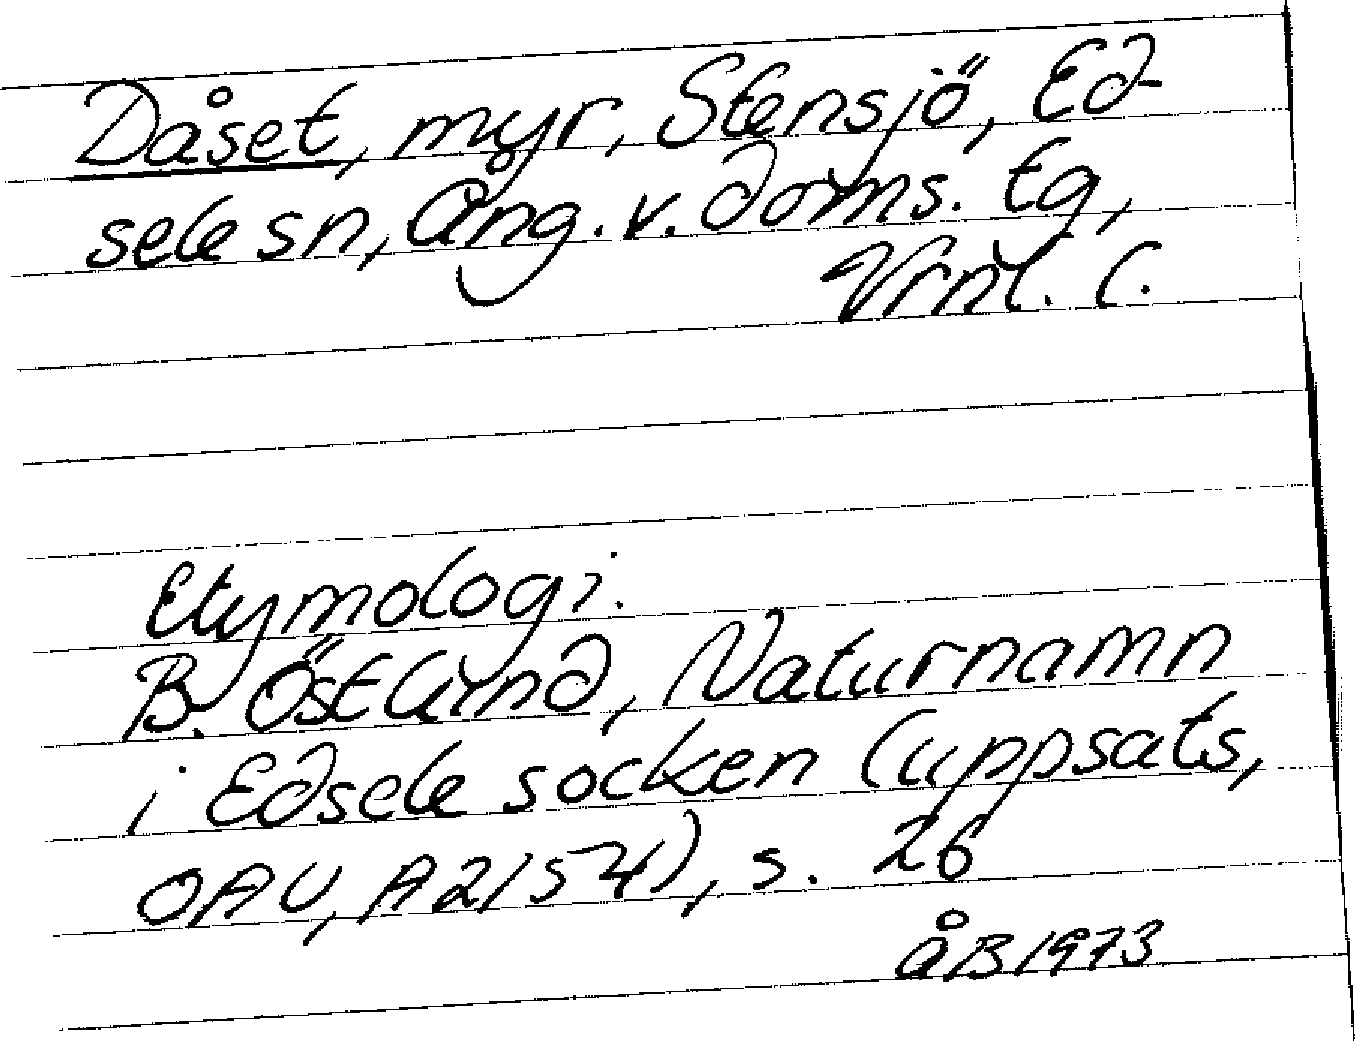 Dåset, myr, Stensjö, Ed-
sele sn, Ång. v. doms. tg,
Vrnl. l.
Etymologi.
B. Östlund, Naturnamn
i Edsele socken (uppsats,
OAU, A2154), s. 26
åB 1973